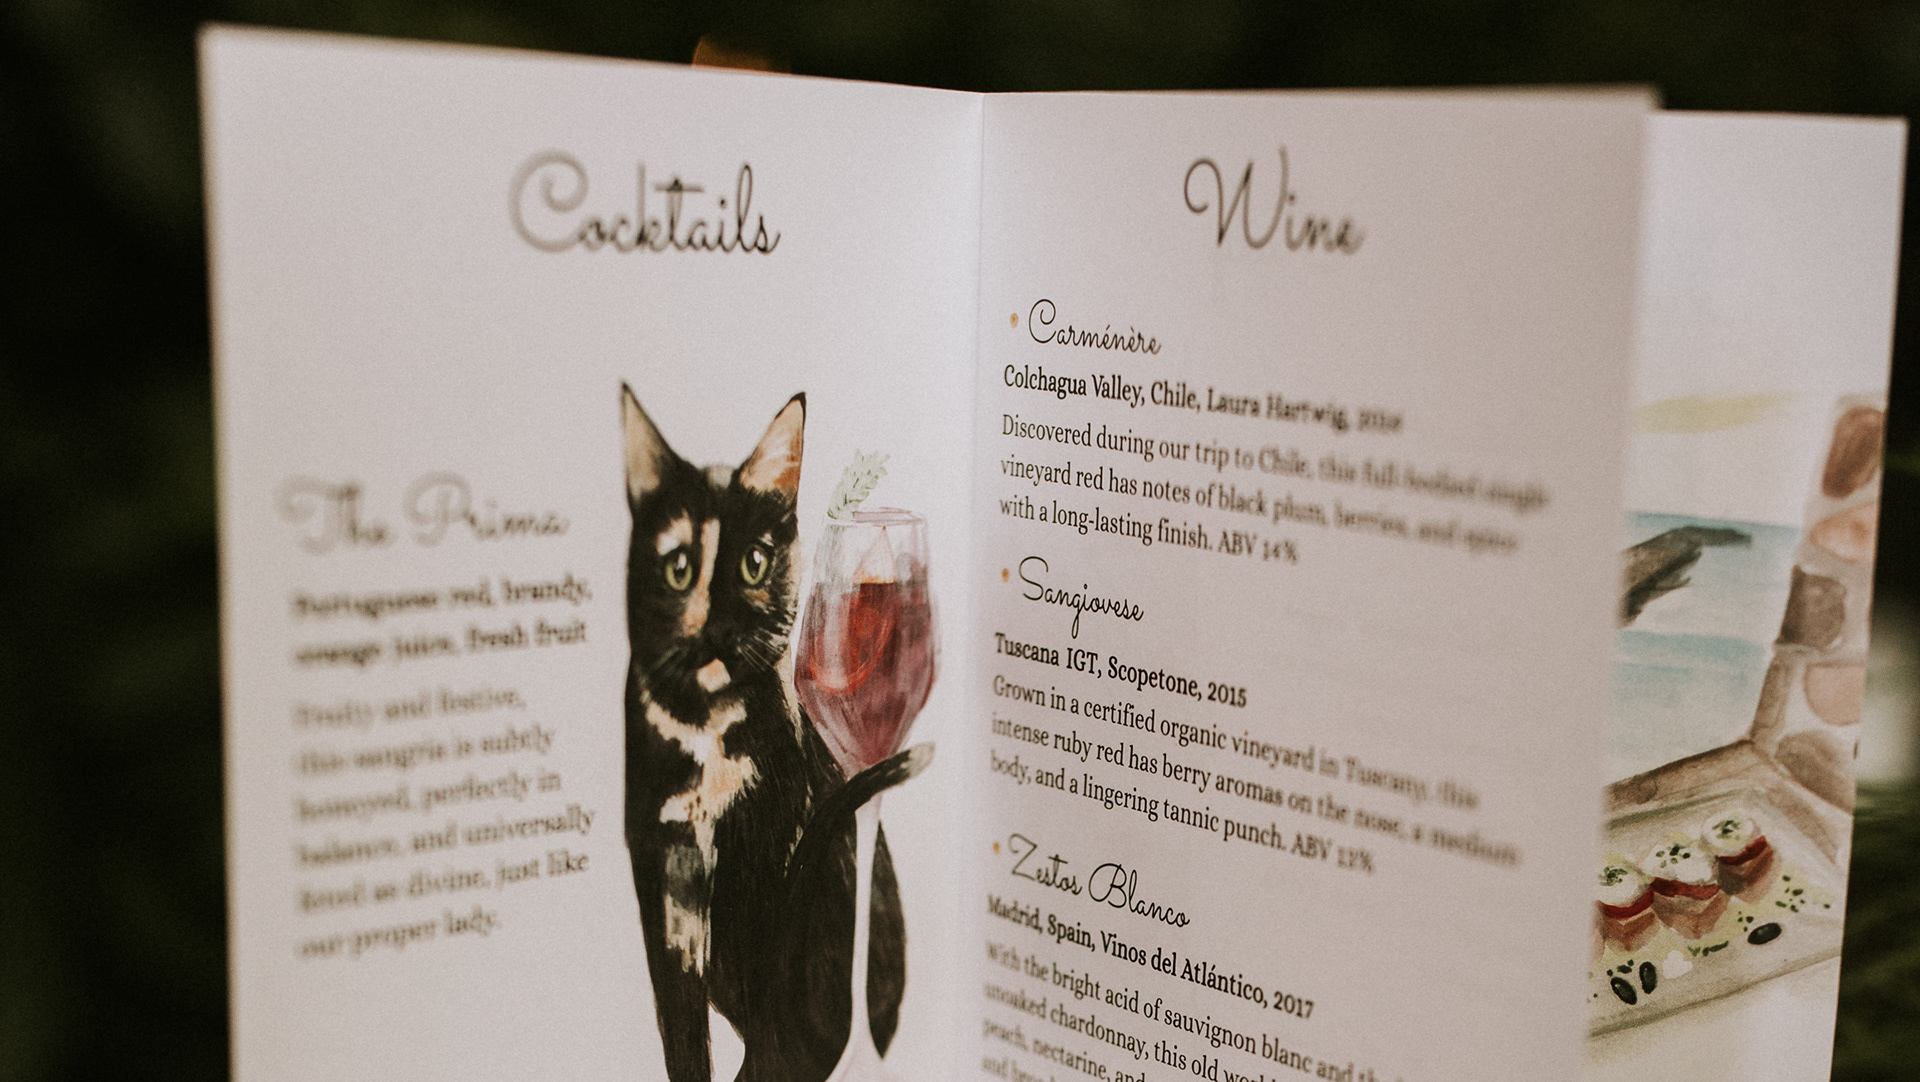 Cocktails
The Prima
Portuguese red, brandy,
orange juice, fresh fruit
Fruity and festive,
this sangria is subtly
honeyed, perfectly in
balance, and universally
loved as divine, just like
our proper lady.
Wine
Carménère
Colchagua Valley, Chile, Laura Hartwig,
Discovered during our trip to Chile, this full-bodied single
vineyard red has notes of black plum, berries, and spice
with a long-lasting finish. ABV 14%
Sangiovese
Tuscana IGT, Scopetone, 2015
Grown in a certified organic vineyard in Tuscany, this
intense ruby red has berry aromas on the nose, a medium
body, and a lingering tannic punch. ABV 12%
Zestos Blanco
Madrid, Spain, Vinos del Atlántico, 2017
With the bright acid of sauvignon blanc and the
unoaked chardonnay, this old
peach, nectarine, and